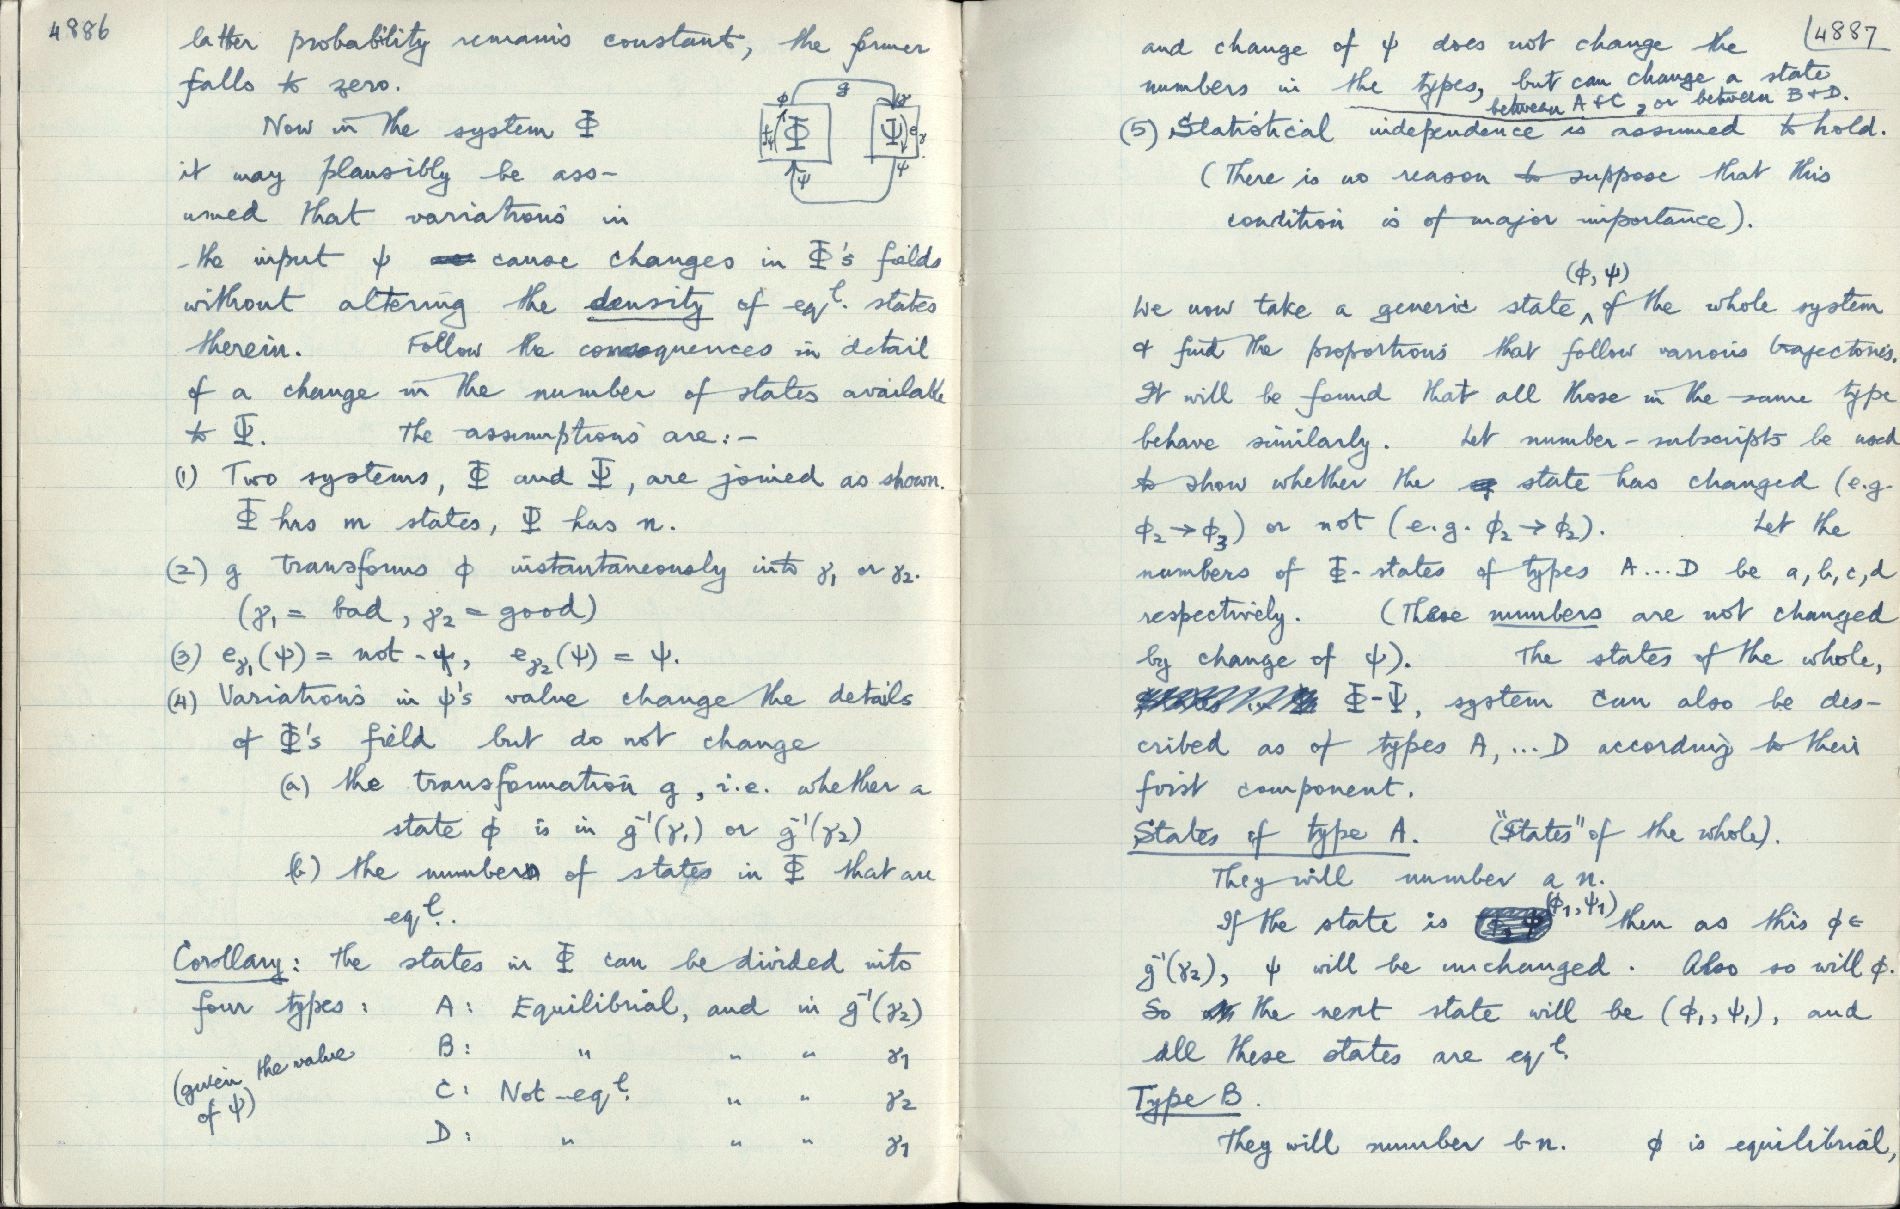 4886
latter probability remains constant, the former
falls to zero.
Now in the system Φ
it may plausibly be ass-
umed that variations in
the input ψ cause changes in Φ's fields
without altering the density of eql. states
therein. Follow the consequences in detail
of a change in the number of states available
to Φ. The assumptions are:-
(1) Two systems, Φ and Ψ, are joined as shown.
Φ has m states, Ψ has n.
(2) g transforms ϕ instantaneously into γ1 or γ2.
(γ1 = bad, γ2 = good)
(3) eγ1(ψ) = not-ψ, eγ2(ψ) = ψ.
(4) Variations in ψ's value change the details
of Φ's field but do not change
(a) the transformation g, i.e. whether a
state ϕ is in g⁻¹(γ1) or g⁻¹(γ2)
(b) the number of states in Φ that are
eql.
Corollary: The states in Φ can be divided into
four types: A: Equilibrial, and in g⁻¹(γ2)
(given the value of ψ)
B: " " " γ1
C: Not-eql. " " γ2
D: " " " γ1
g
ϕ γ
Φ Ψ
ψ ψ
4887
and change of ψ does not change the
numbers in the types, but can change a state
between A & C, or between B & D.
(5) Statistical independence is assumed to hold.
(There is no reason to suppose that this
condition is of major importance).
(ϕ, ψ)
We now take a generic state ^ of the whole system
& find the proportions that follow various trajectories.
It will be found that all those in the same type
behave similarly. Let number-subscripts be used
to show whether the state has changed (e.g.
ϕ2 → ϕ3) or not (e.g. ϕ2 → ϕ2). Let the
numbers of Φ-states of types A...D be a, b, c, d
respectively. (These numbers are not changed
by change of ψ). The states of the whole,
Φ-Ψ, system can also be des-
cribed as of types A, ... D according to their
first component.
States of type A. ("States" of the whole).
They will number a n.
If the state is (ϕ1, ψ1) then as this ϕ ∈
g⁻¹(γ2), ψ will be unchanged. Also so will ϕ.
So the next state will be (ϕ1, ψ1), and
all these states are eql.
Type B.
They will number b n. ϕ is equilibrial,